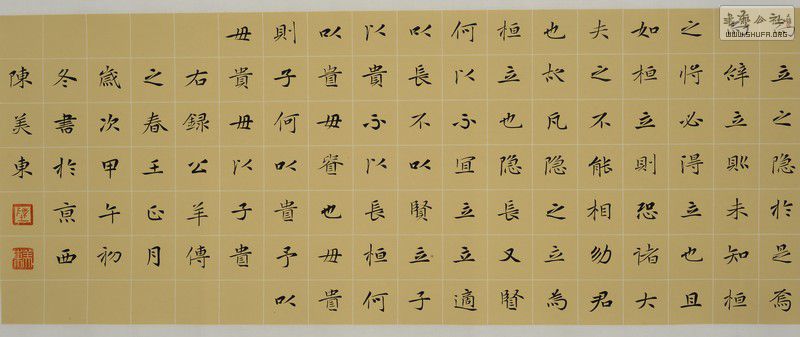 立之隱於是焉
辭立則未知桓
之將必得立也且
如桓立則恐諸大
夫之不能相幼君
也故凡隱之立為
桓立也隱長又賢
何以不宜立立適
以長不以賢立子
以貴不以長桓何
以貴毋貴也毋貴
則子何以貴子以
毋貴毋以子貴
右録公羊傳
之春王正月
歲次甲午初
冬書於京西
陳美東
WWW.SHUFA.ORG